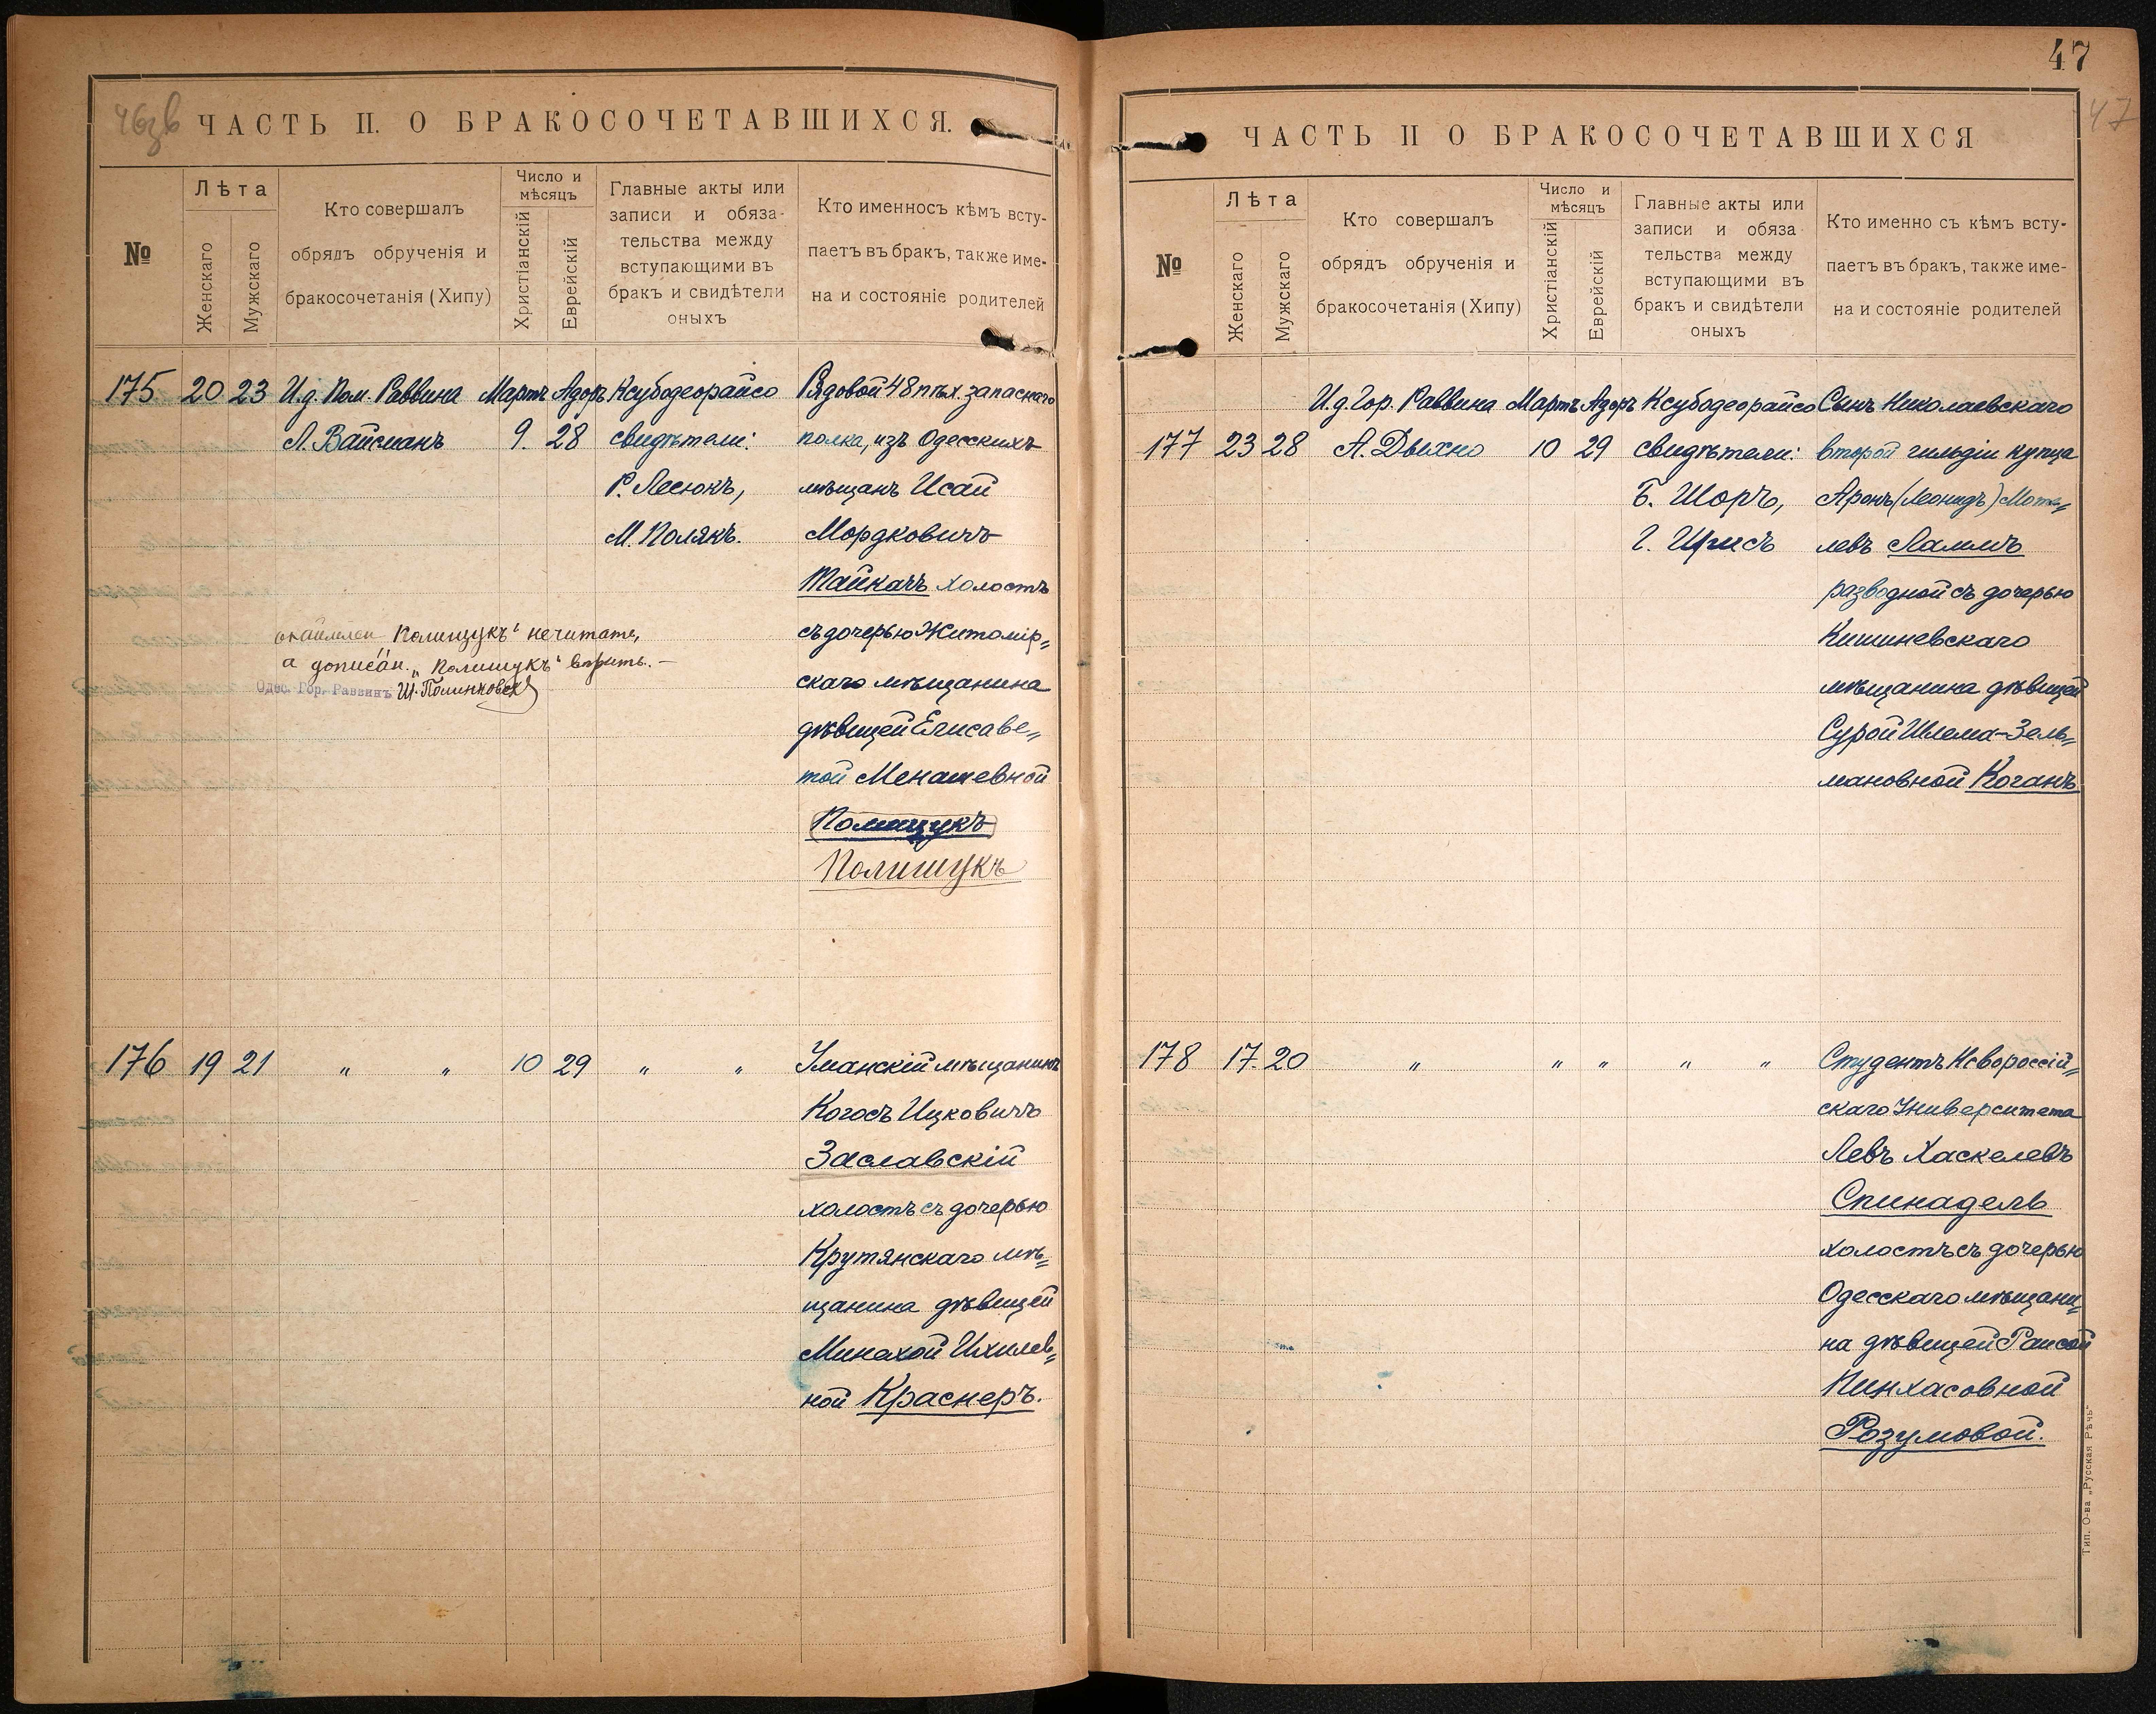 46зв
ЧАСТЬ II. О БРАКОСОЧЕТАВШИХСЯ.
№
Лѣта
Женскаго
Мужскаго
Кто совершалъ
обрядъ обрученія и
бракосочетанія (Хипу)
Число и
мѣсяцъ
Христіанскій
Еврейскій
Главные акты или
записи и обяза-
тельства между
вступающими въ
бракъ и свидѣтели
оныхъ
Кто именносъ кѣмъ всту-
паетъ въ бракъ, также име-
на и состояніе родителей
175 20 23 И.д. Пом. Раввина Мартъ Адоръ Ксубодеорайсо Рядовой 48 пѣх. запаснаго
Л. Вайсманъ 9. 28 свидѣтели: полка, изъ Одесскихъ
Р. Лесюкъ, мѣщанъ Исай
М. Полякъ. Мордковичъ
Тайкачъ холостъ
"Полищукъ" не читать, съ дочерью Житомір=
а дописан. "Полишукъ" вѣрить.— скаго мѣщанина
Одес. Гор. Раввинъ
дѣвицей Елисаве=
той Менашевной
Полищукъ
Полишукъ
176 19 21 " " 10 29 " " Уманскій мѣщанинъ
Когосъ Ицковичъ
Заславскій
холостъ съ дочерью
Крутянскаго мѣ=
щанина дѣвицей
Минахой Ихилев=
ной Краснеръ.
47
47
ЧАСТЬ II О БРАКОСОЧЕТАВШИХСЯ
№
Лѣта
Женскаго
Мужскаго
Кто совершалъ
обрядъ обрученія и
бракосочетанія (Хипу)
Число и
мѣсяцъ
Христіанскій
Еврейскій
Главные акты или
записи и обяза
тельства между
вступающими въ
бракъ и свидѣтели
оныхъ
Кто именно съ кѣмъ всту-
паетъ въ бракъ, также име-
на и состояніе родителей
И.д. Гор. Раввина Мартъ Адоръ Ксубодеорайсо Сынъ Николаевскаго
177 23 28 А. Дыхно 10 29 свидѣтели: второй гильдіи купца
Б. Шоръ, Аронъ (Леонидъ) Моте=
левъ
разводной съ дочерью
Кишиневскаго
мѣщанина дѣвицей
Сурой Шлема-Зель=
мановной Коганъ
178 17. 20 " " " " " Студентъ Новороссій=
скаго Университета
Левъ Хаскелевъ
Спинадель
холостъ съ дочерью
Одесскаго мѣщани=
на дѣвицей Раисой
Пинхасовной
Розумовой.
Тип. О-ва „Русская Рѣчь"